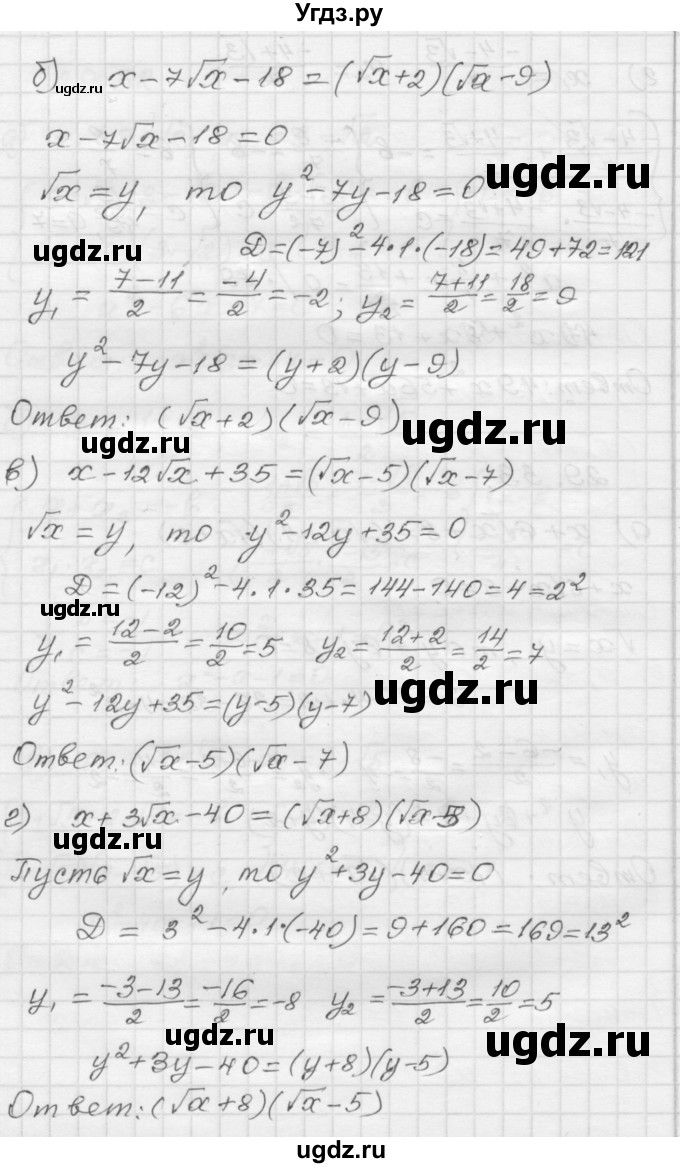 Угдз.ру
б) x-7√x-18=(√x+2)(√x-9)
ugdz.ru
x-7√x-18=0
ugdz.ru
√x=y, то y²-7y-18=0
ugdz.ru
D=(-7)²-4·1·(-18)=49+72=121
y₁=(7-11)/2=-4/2=-2; y₂=(7+11)/2=18/2=9
ugdz.ru
y²-7y-18=(y+2)(y-9)
Ответ: (√x+2)(√x-9)
ugdz.ru
ugdz.ru
в) x-12√x+35=(√x-5)(√x-7)
√x=y, то y²-12y+35=0
ugdz.ru
D=(-12)²-4·1·35=144-140=4=2²
ugdz.ru
y₁=(12-2)/2=10/2=5 y₂=(12+2)/2=14/2=7
ugdz.ru
y²-12y+35=(y-5)(y-7)
Ответ: (√x-5)(√x-7)
г) x+3√x-40=(√x+8)(√x-5)
ugdz.ru
ugdz.ru
Пусть √x=y, то y²+3y-40=0
D=3²-4·1·(-40)=9+160=169=13²
y₁=(-3-13)/2=-16/2=-8 y₂=(-3+13)/2=10/2=5
ugdz.ru
ugdz.ru
y²+3y-40=(y+8)(y-5)
Ответ: (√x+8)(√x-5)
ugdz.ru